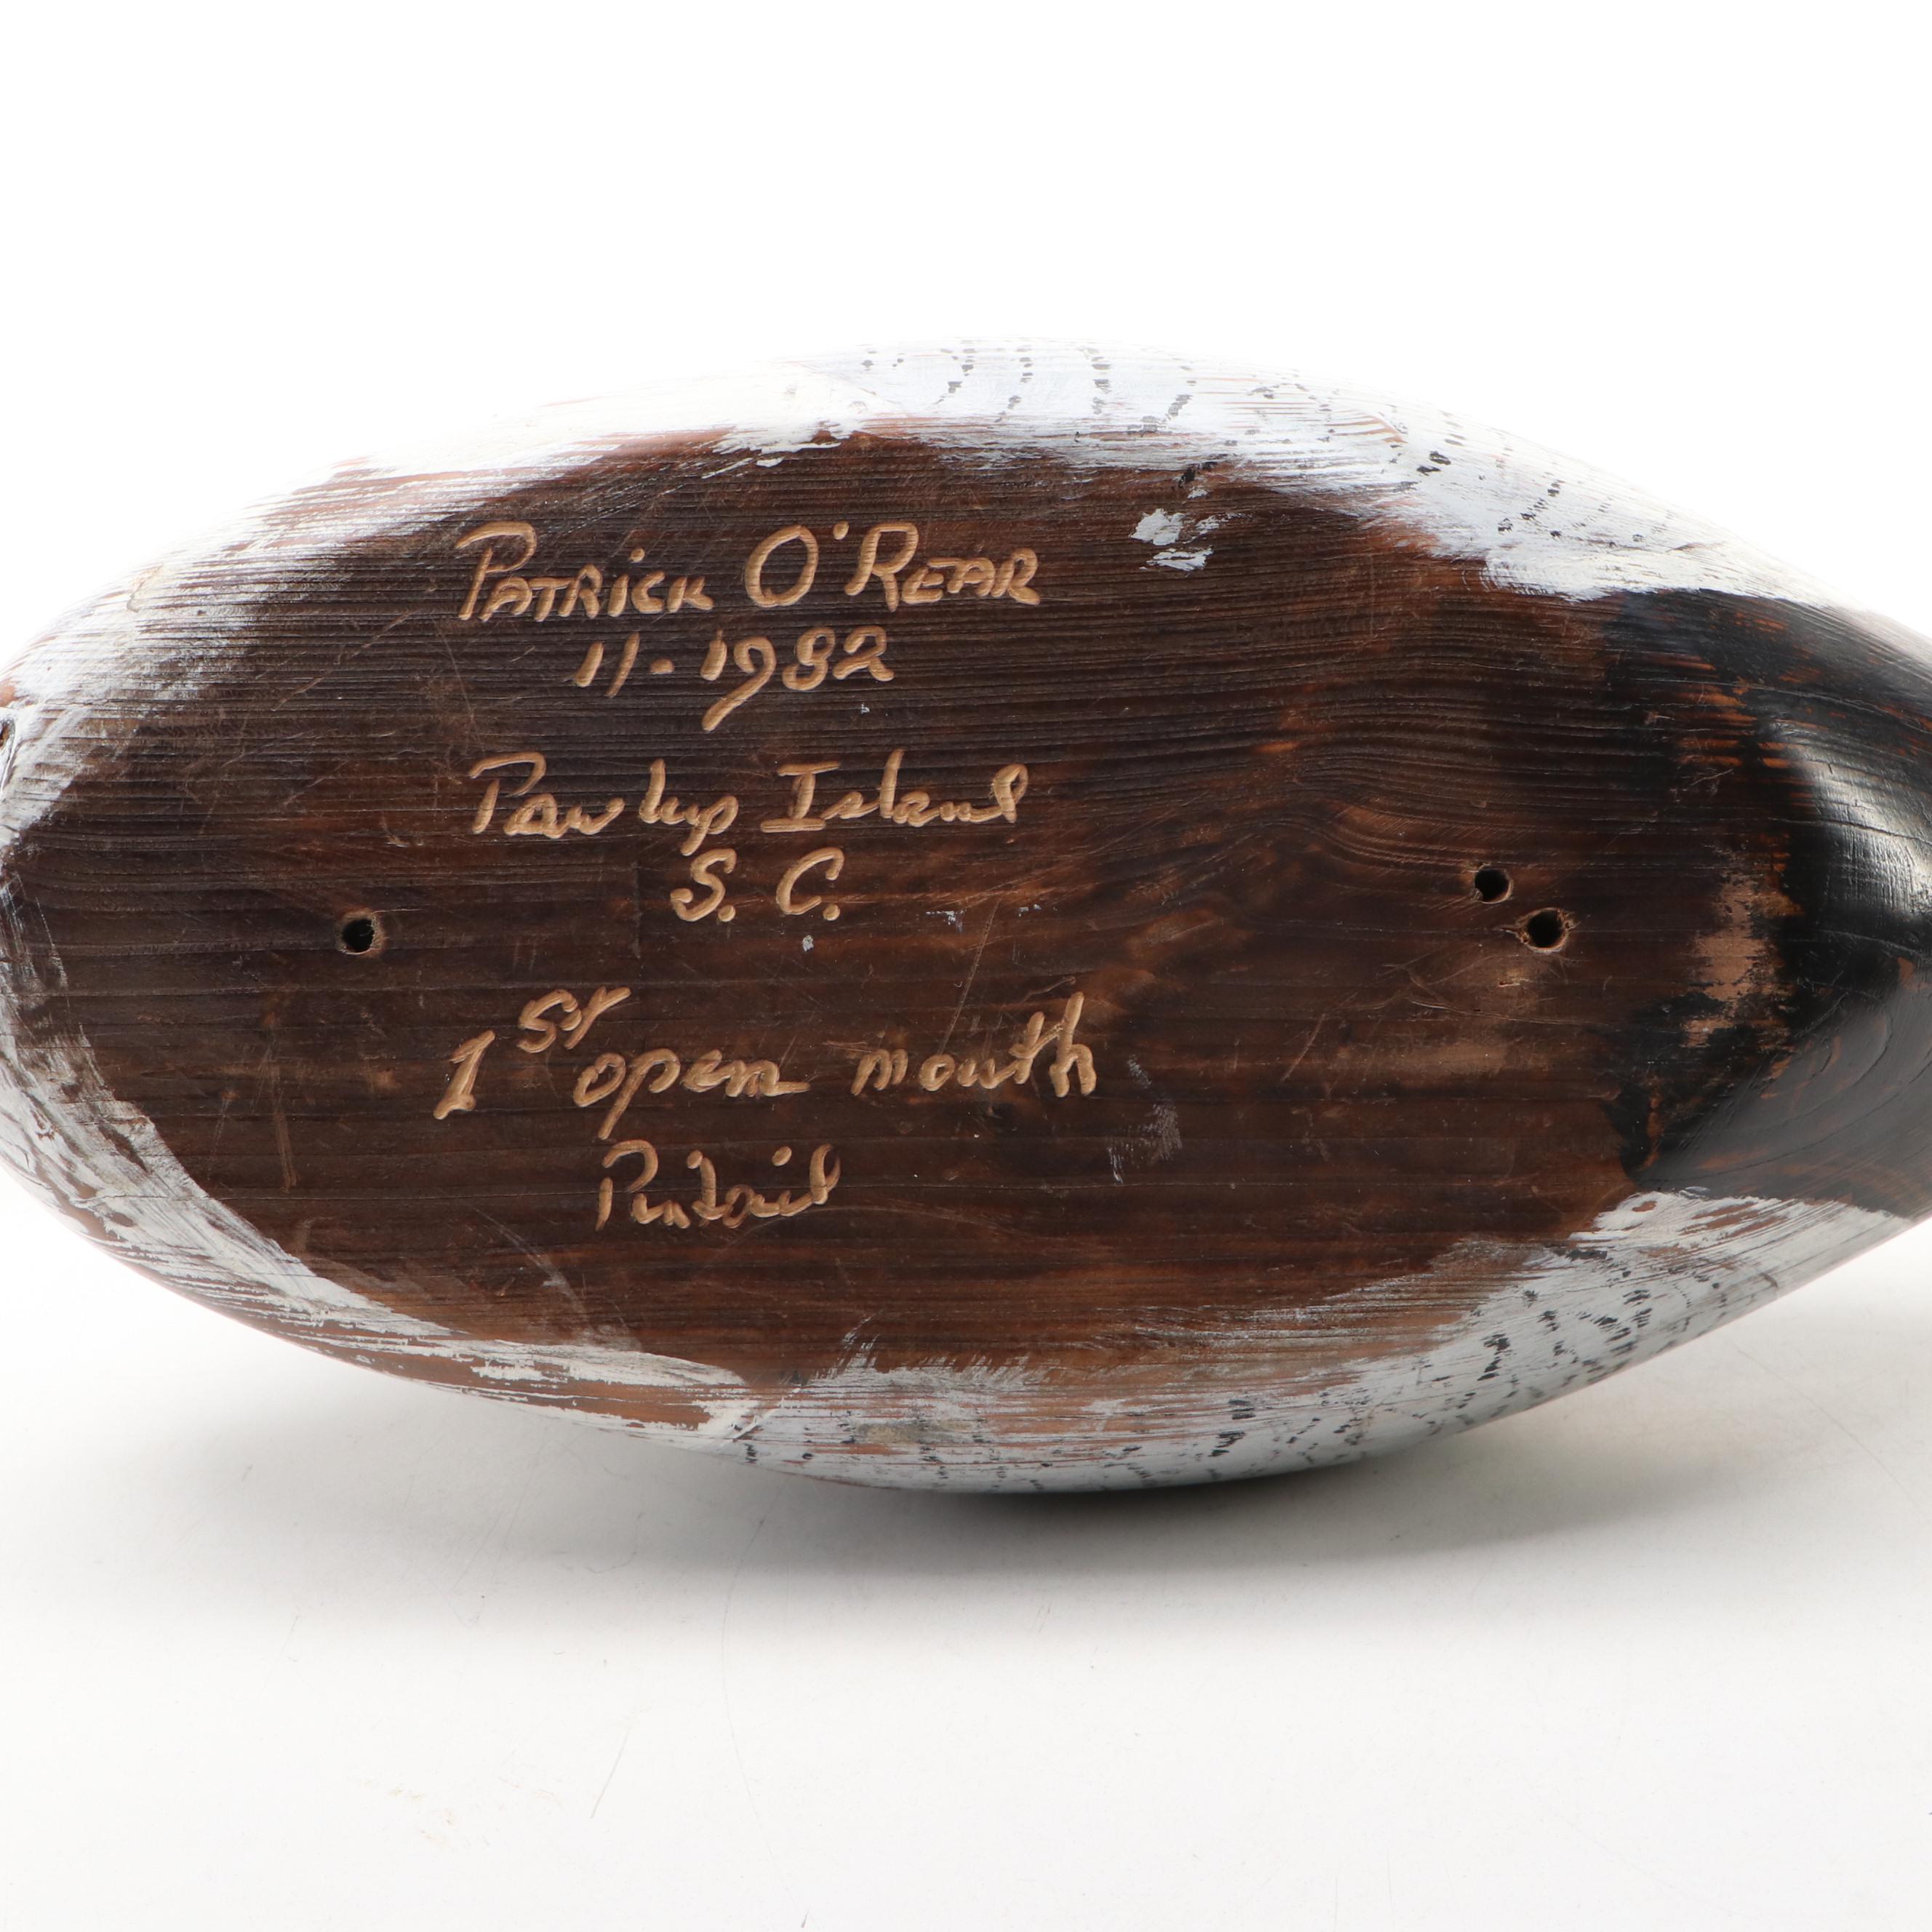 PATRICK O'REAR
11-1982
Pawleys Island
S. C.
1st open mouth
Pintail